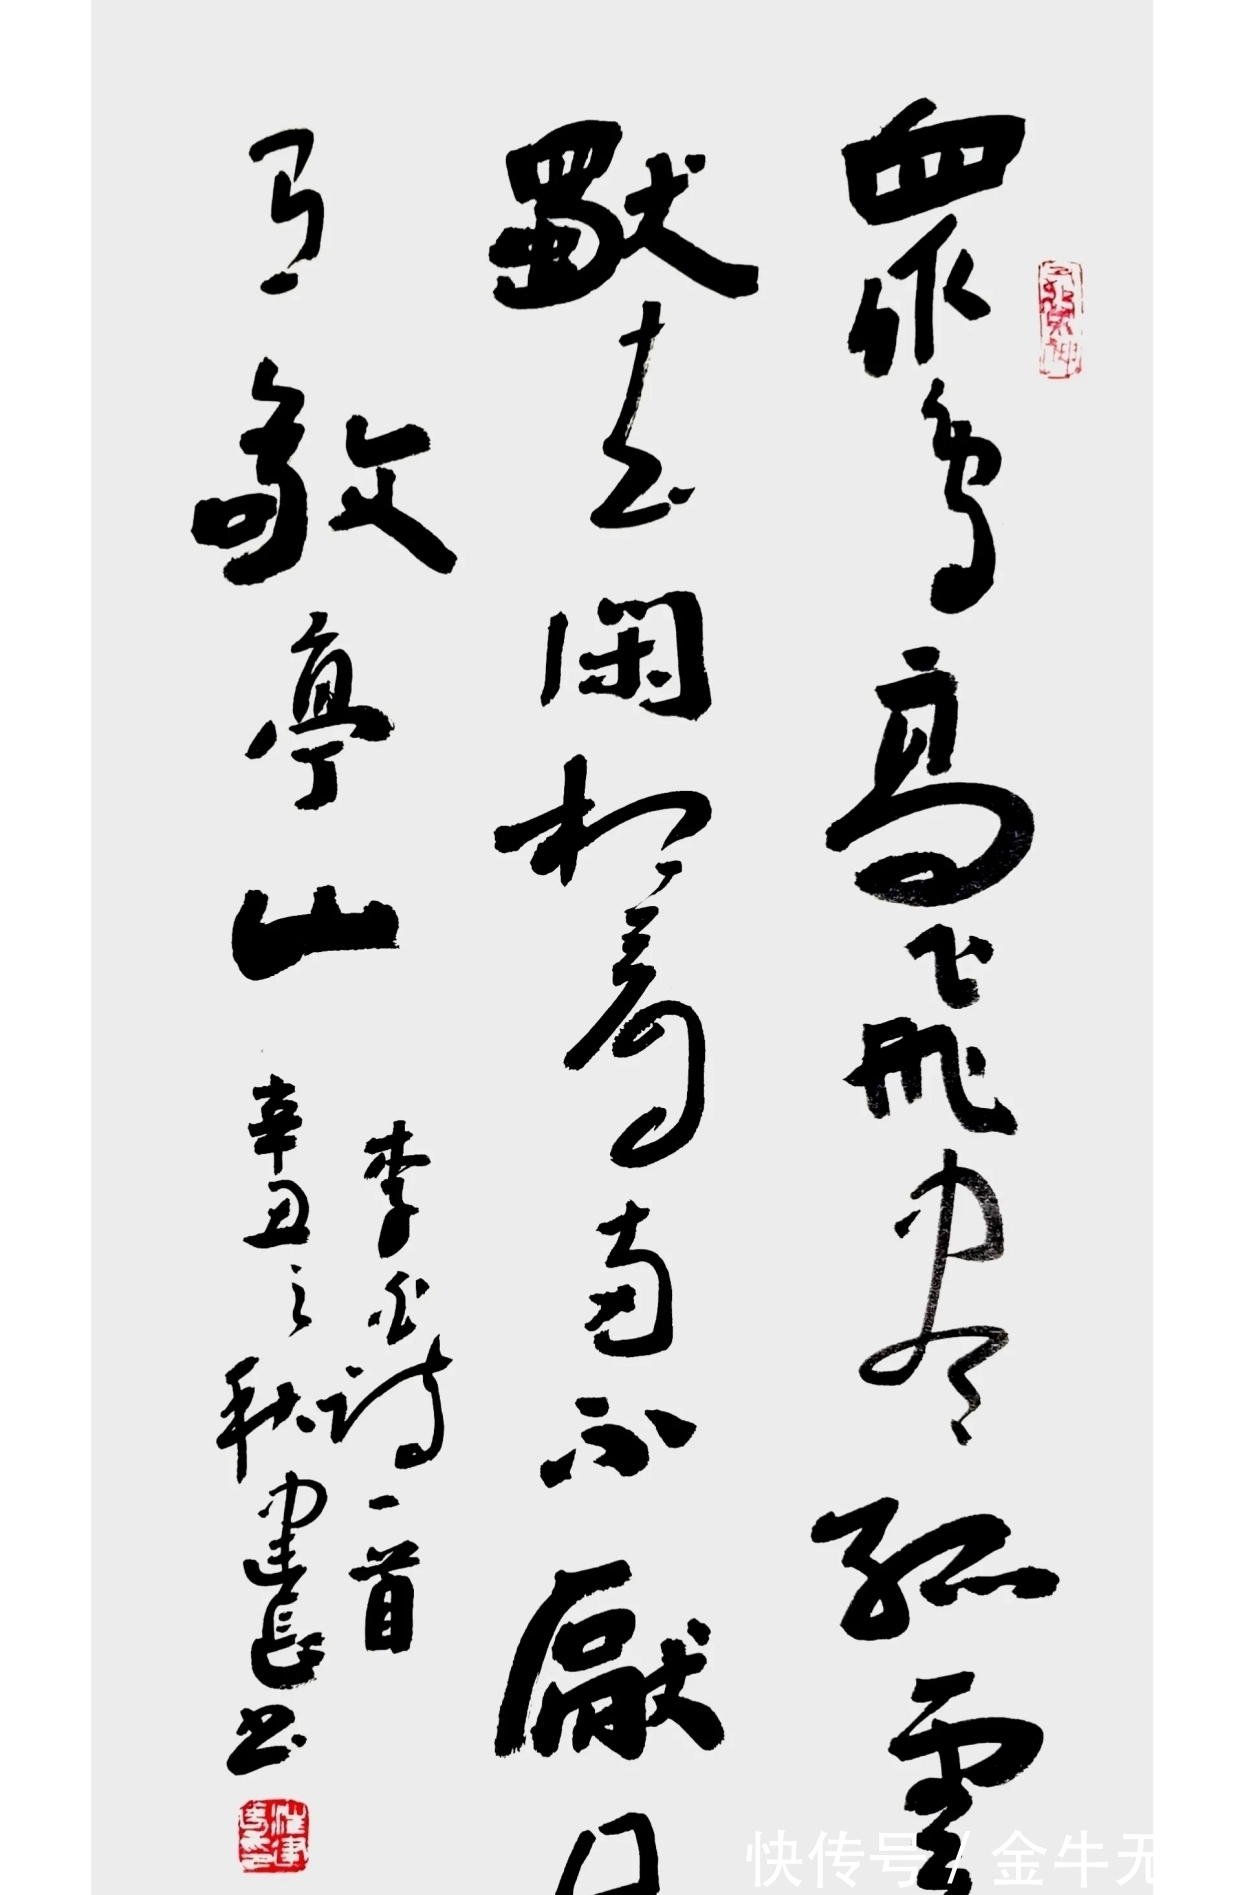 眾鳥高飛盡孤雲
獨去閑相看兩不厭
有敬亭山
李白詩一首
辛丑之秋建長书
快传号 / 金牛无